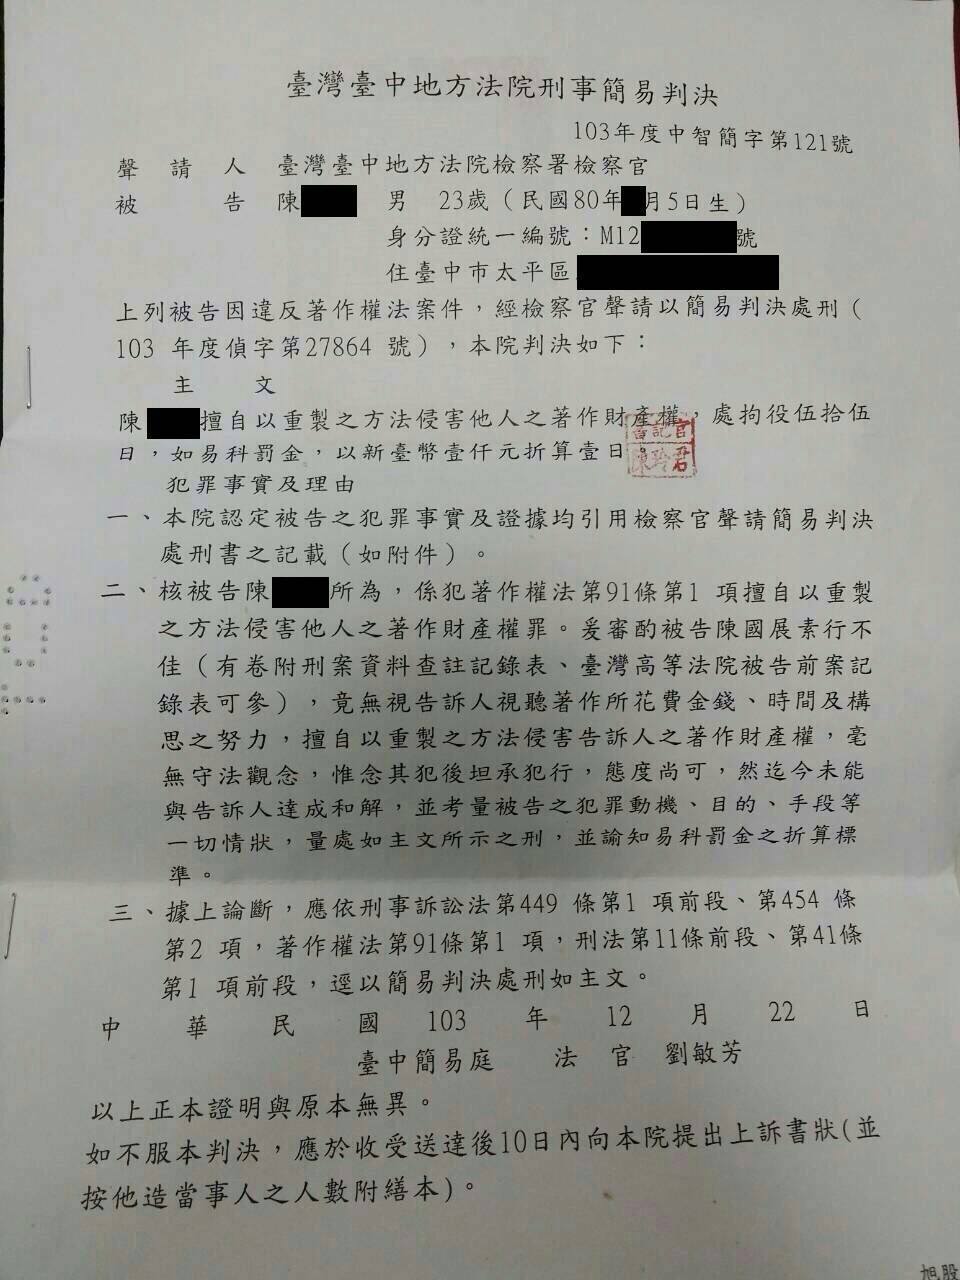 臺灣臺中地方法院刑事簡易判決
103年度中智簡字第121號
聲請人 臺灣臺中地方法院檢察署檢察官
被告 陳 男 23歲（民國80年 月5日生）
身分證統一編號：M12 號
住臺中市太平區
上列被告因違反著作權法案件，經檢察官聲請以簡易判決處刑（
103 年度偵字第27864 號），本院判決如下：
主文
陳 擅自以重製之方法侵害他人之著作財產權，處拘役伍拾伍
日，如易科罰金，以新臺幣壹仟元折算壹日。
書記官
陳玲君
犯罪事實及理由
一、本院認定被告之犯罪事實及證據均引用檢察官聲請簡易判決
處刑書之記載（如附件）。
二、核被告陳 所為，係犯著作權法第91條第1 項擅自以重製
之方法侵害他人之著作財產權罪。爰審酌被告陳國展素行不
佳（有卷附刑案資料查註記錄表、臺灣高等法院被告前案記
錄表可參），竟無視告訴人視聽著作所花費金錢、時間及構
思之努力，擅自以重製之方法侵害告訴人之著作財產權，毫
無守法觀念，惟念其犯後坦承犯行，態度尚可，然迄今未能
與告訴人達成和解，並考量被告之犯罪動機、目的、手段等
一切情狀，量處如主文所示之刑，並諭知易科罰金之折算標
準。
三、據上論斷，應依刑事訴訟法第449 條第1 項前段、第454 條
第2 項，著作權法第91條第1 項，刑法第11條前段、第41條
第1 項前段，逕以簡易判決處刑如主文。
中華民國 103 年 12 月 22 日
臺中簡易庭 法官 劉敏芳
以上正本證明與原本無異。
如不服本判決，應於收受送達後10日內向本院提出上訴書狀(並
按他造當事人之人數附繕本)。
旭股